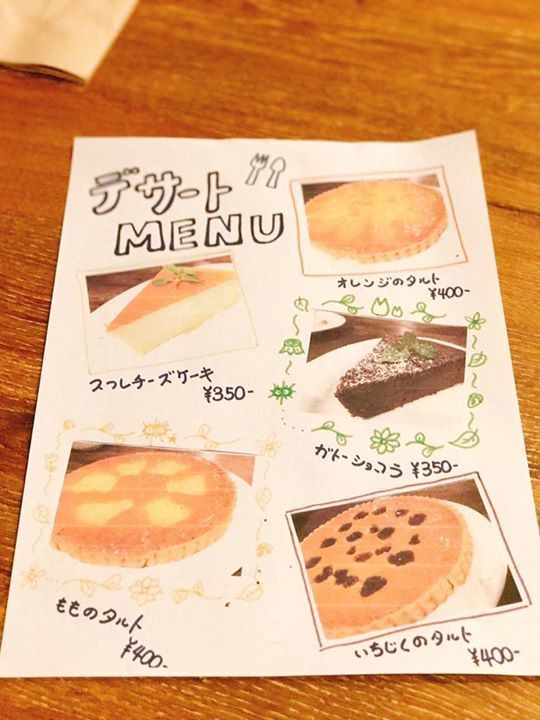 デザート
MENU
オレンジのタルト
¥400-
スフレチーズケーキ
¥350-
ガトーショコラ ¥350-
もものタルト
¥400-
いちじくのタルト
¥400-